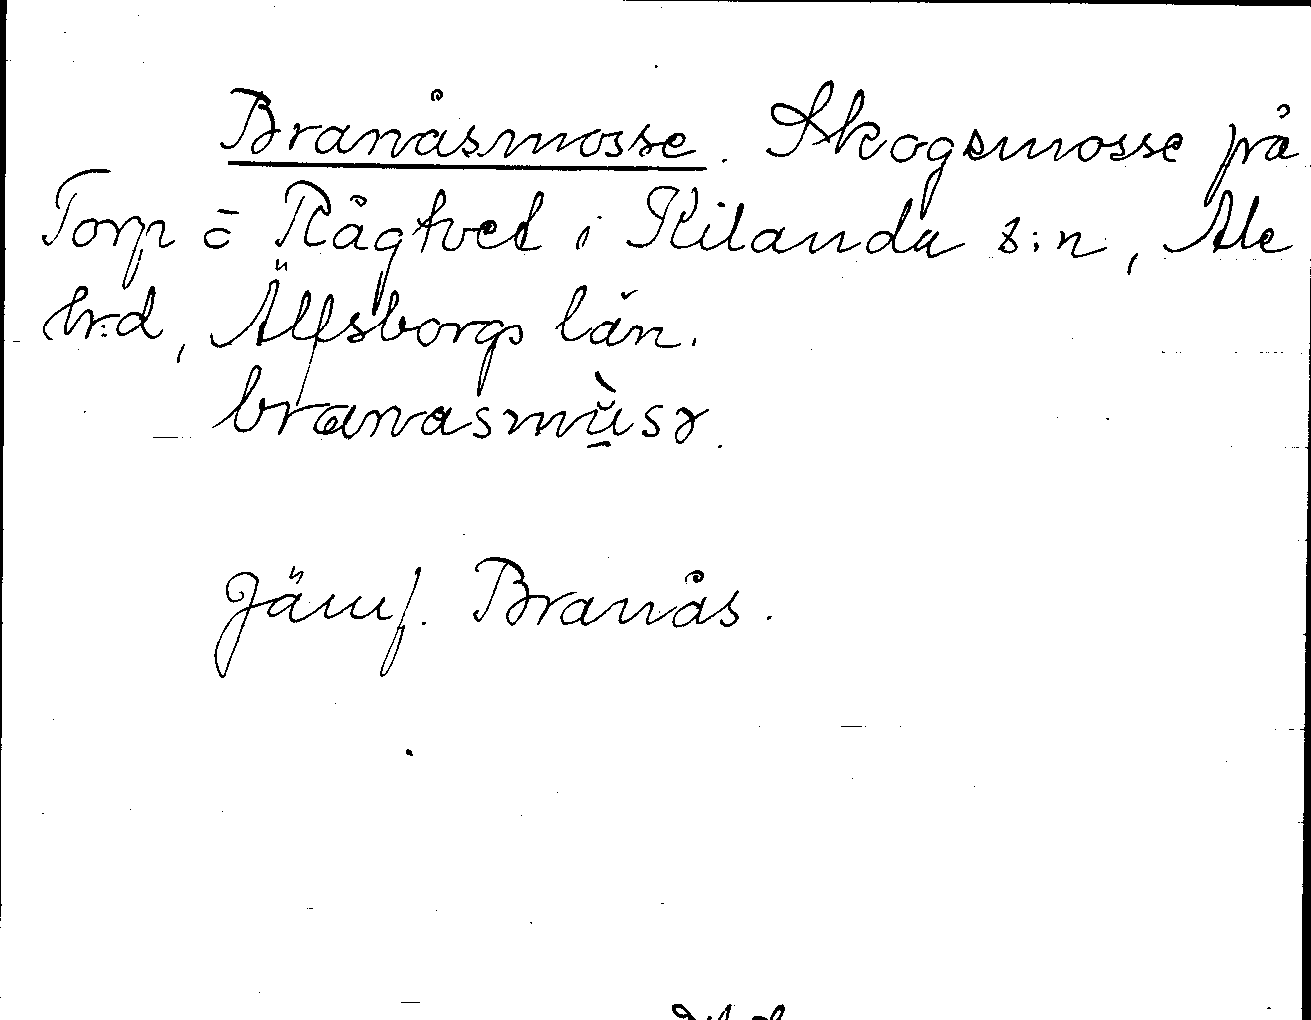 Branåsmosse. Skogsmosse på
Torp o Rågtvet i Kilanda s:n, Ale
hr:d, Älfsborgs län.
branasmùsɤ.
Jämf. Branås.